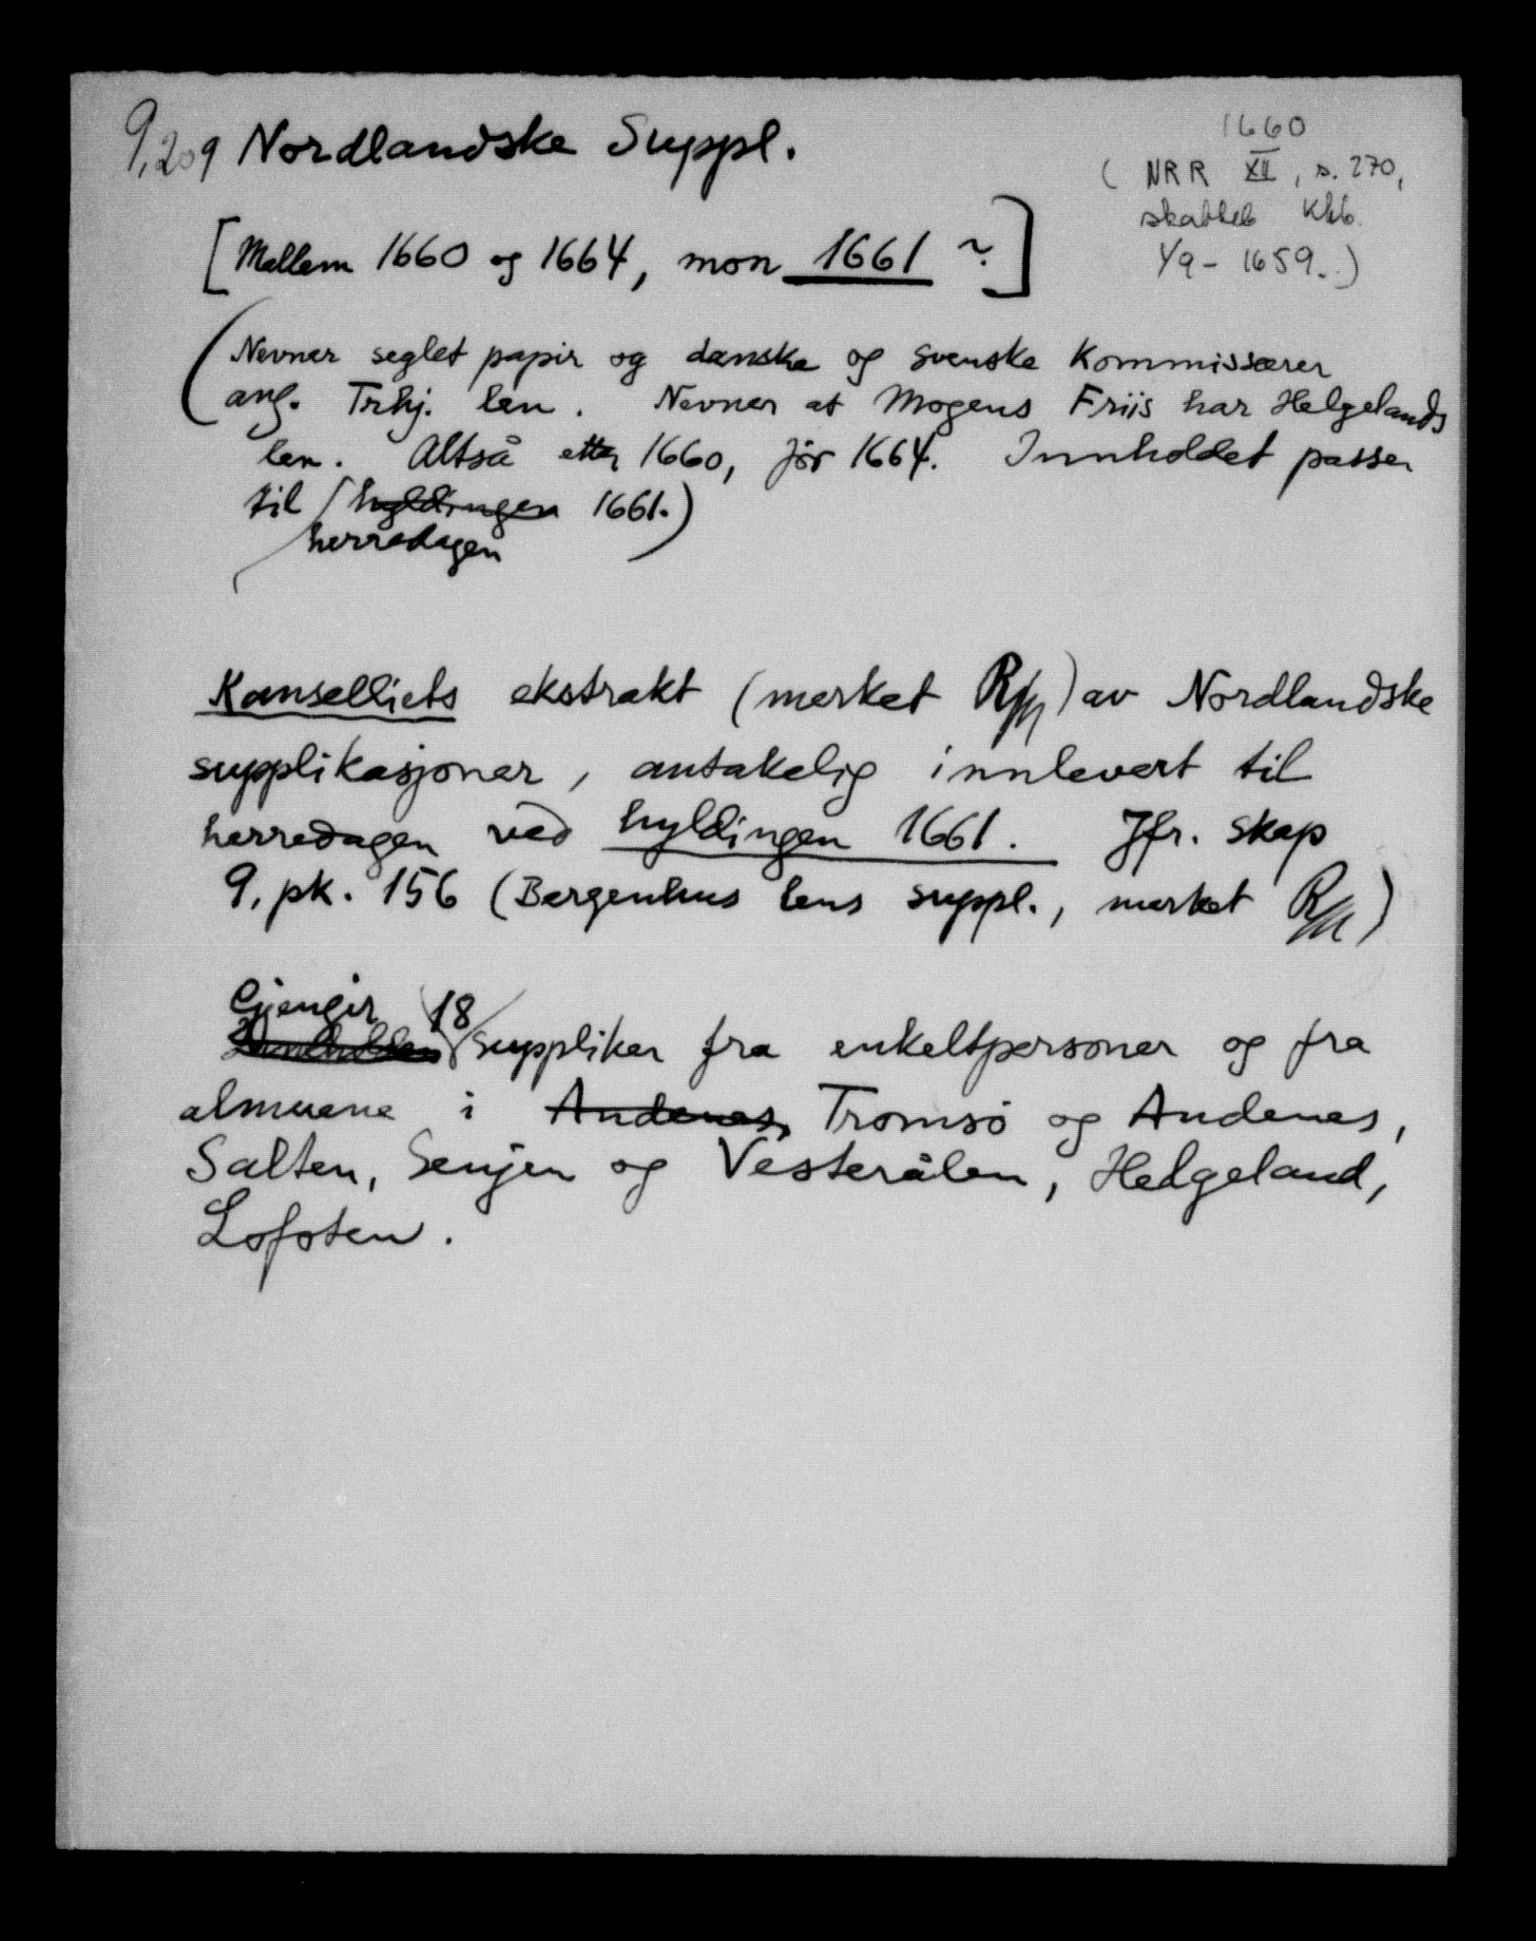 9,209 Nordlandske Suppl.
1660
( NRR XII, s. 270,
skatteb Khb.
1/9 - 1659..)
[Mellem 1660 og 1664, mon 1661 ?]
(Nevner seglet papir og danske og svenske Kommissærer
ang. Trhj. len. Nevner at Mogens Friis har Helgelands
len. Altså etter 1660, før 1664. Innholdet passer
til hyldingen 1661.)
herredagen
Kanselliets ekstrakt (merket R) av Nordlandske
supplikasjoner, antakelig innlevert til
herredagen ved hyldingen 1661. Jfr. skap
9, pk. 156 (Bergenhus lens suppl., merket R)
Gjengir 18
supplikar fra enkeltpersoner og fra
almuene i Andenes, Tromsö og Andenes,
Salten, Senjen og Vesterålen, Helgeland,
Lofoten.